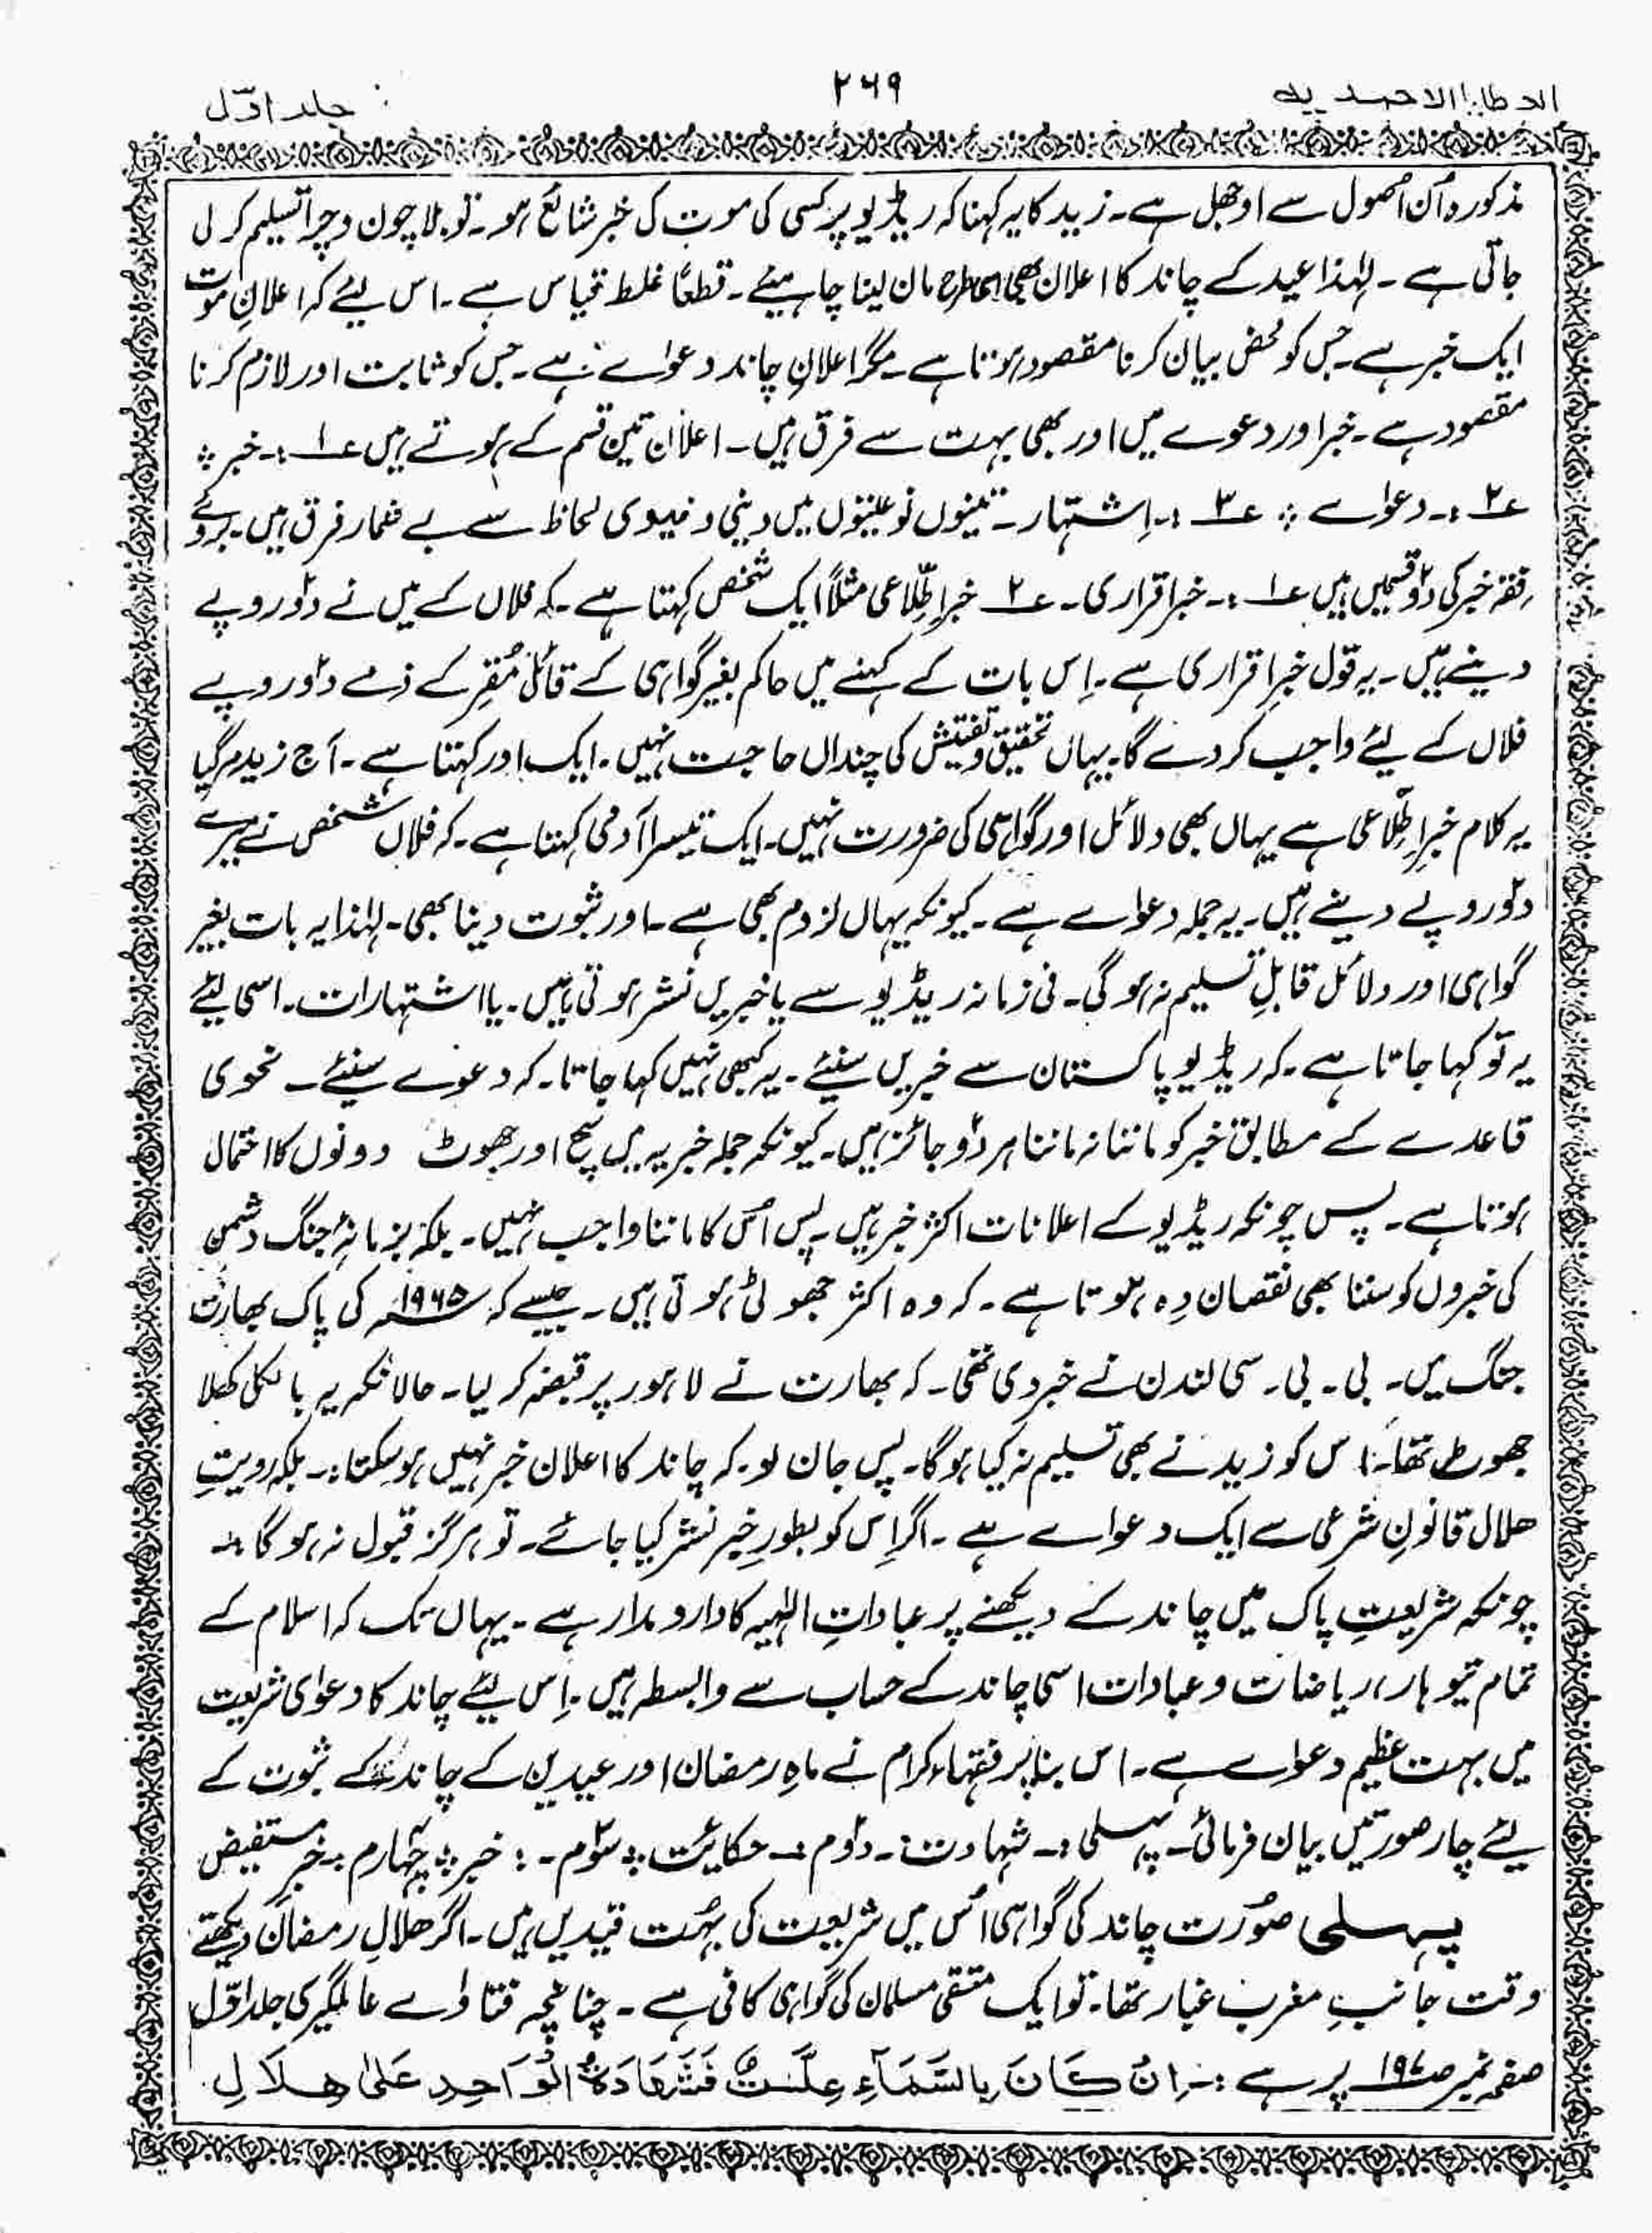 العطایا الاحمدیہ ۲۶۹ جلد اوّل
مذکورہ اُن اُصُول سے اوجھل ہے۔ زید کا یہ کہنا کہ ریڈیو پر کسی کی موت کی خبر شائع ہو۔ تو بلا چون و چرا تسلیم کر لی
جاتی ہے۔ لہٰذا عید کے چاند کا اعلان بھی اسی طرح مان لینا چاہیئے۔ قطعًا غلط قیاس ہے۔ اس لیئے کہ اعلانِ موت
ایک خبر ہے۔ جس کو محض بیان کرنا مقصود ہوتا ہے۔ مگر اعلانِ چاند دعواے ہے۔ جس کو ثابت اور لازم کرنا
مقصود ہے۔ خبر اور دعوے میں اور بھی بہت سے فرق ہیں۔ اعلان تین قسم کے ہوتے ہیں ؏۱:۔ خبر ؞
؏۲:۔ دعواے ؞ ؏۳:۔ اِشتہار۔ تینوں نوعیتوں میں دینی دنیوی لحاظ سے بے شمار فرق ہیں۔ بروئے
فقہ خبر کی دوؔ قسمیں ہیں ؏۱:۔ خبر اقراری۔ ؏۲ خبرِ اطِّلاعی مثلًا ایک شخص کہتا ہے۔ کہ فلاں کے میں نے دوؔ روپے
دینے ہیں۔ یہ قول خبرِ اقراری ہے۔ اِس بات کے کہنے میں حاکم بغیر گواہی کے قائلِ مُقِر کے ذمے دوؔ روپے
فلاں کے لیئے واجب کر دے گا۔ یہاں تحقیق و تفتیش کی چنداں حاجت نہیں۔ ایک اور کہتا ہے۔ آج زید مر گیا
یہ کلام خبرِ اطِّلاعی ہے یہاں بھی دلائل اور گواہی کی ضرورت نہیں۔ ایک تیسرا آدمی کہتا ہے۔ کہ فلاں شخص نے میرے
دوؔ روپے دینے ہیں۔ یہ جملہ دعواے ہے۔ کیونکہ یہاں لزوم بھی ہے۔ اور ثبوت دینا بھی۔ لہٰذا یہ بات بغیر
گواہی اور دلائل قابلِ تسلیم نہ ہو گی۔ فی زمانہ ریڈیو سے یا خبریں نشر ہوتی ہیں۔ یا اشتہارات۔ اسی لیئے
یہ تو کہا جاتا ہے۔ کہ ریڈیو پاکستان سے خبریں سنیئے۔ یہ کبھی نہیں کہا جاتا۔ کہ دعوے سنیئے۔ نحوی
قاعدے کے مطابق خبر کو ماننا نہ ماننا ہر دوؔ جائز ہیں۔ کیونکہ جملہ خبریہ میں سچ اور جھوٹ دونوں کا احتمال
ہوتا ہے۔ پس چونکہ ریڈیو کے اعلانات اکثر خبر ہیں۔ پس اُس کا ماننا واجب نہیں۔ بلکہ بزمانۂ جنگ دشمن
کی خبروں کو سننا بھی نقصان دِہ ہوتا ہے۔ کہ وہ اکثر جھوٹی ہوتی ہیں۔ جیسے کہ ۱۹۶۵؁ء کی پاک بھارت
جنگ میں۔ بی۔ بی۔ سی لندن نے خبر دی تھی۔ کہ بھارت نے لاہور پر قبضہ کر لیا۔ حالانکہ یہ بالکل کھلا
جھوٹ تھا۔ اس کو زید نے بھی تسلیم نہ کیا ہو گا۔ پس جان لو۔ کہ چاند کا اعلان خبر نہیں ہو سکتا:۔ بلکہ رویتِ
ھلال قانونِ شرعی سے ایک دعواے ہے۔ اگر اِس کو بطورِ خبر نشر کیا جائے۔ تو ہرگز قبول نہ ہو گا:۔
چونکہ شریعتِ پاک میں چاند کے دیکھنے پر عباداتِ الٰہیہ کا دارومدار ہے۔ یہاں تک کہ اسلام کے
تمام تیوہار، ریاضات و عبادات اسی چاند کے حساب سے وابسطہ ہیں۔ اِس لیئے چاند کا دعوای شریعت
میں بہت عظیم دعواے ہے۔ اس بنا پر فقہاءِ کرام نے ماہِ رمضان اور عیدین کے چاند کے ثبوت کے
لیئے چار صورتیں بیان فرمائی۔ پہلی:۔ شہادت:۔ دوؔم:۔ حکایت ؞ سوم۔: خبر ؞ چہارم:۔ خبر مستفیض
پہلی صُورت چاند کی گواہی اُس میں شریعت کی بہُت قیدیں ہیں۔ اگر ھلالِ رمضان دیکھتے
وقت جانبِ مغرب غبار تھا۔ تو ایک متقی مسلمان کی گواہی کافی ہے۔ چنانچہ فتاواے عالمگیری جلد اوّل
صفحہ نمبر ص۱۹۷ پر ہے:۔ اِنْ کَانَ بِالسَّمَآءِ عِلَّتٌ فَشَهَادَۃُ الْوَاحِدِ عَلیٰ هِلَالِ